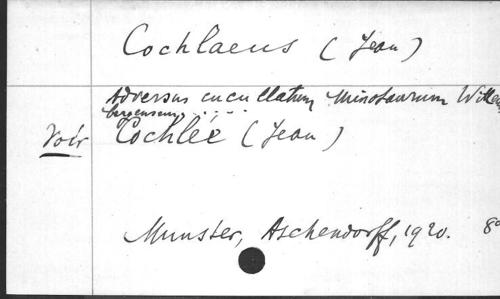 Cochlaeus (Jean)
Adversus cucullatum Minotaurum Wittem
bergensem......
Voir Cochlée (Jean)
Munster, Aschendorff, 1920. 8º